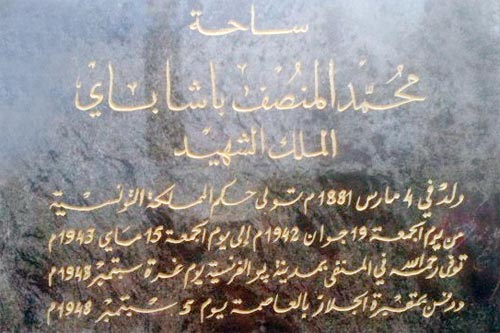 ساحة
محمّد المنصف باشا باي
الملك الشهيد
ولد في 4 مارس 1881م تولى حكم المملكة التونسية
من يوم الجمعة 19 جوان 1942م إلى يوم الجمعة 15 ماي 1943م
توفى رحمه الله في المنفى بمدينة بو الفرنسية يوم غرة سبتمبر 1948م
ودفن بمقبرة الجلاز بالعاصمة يوم 5 سبتمبر 1948م